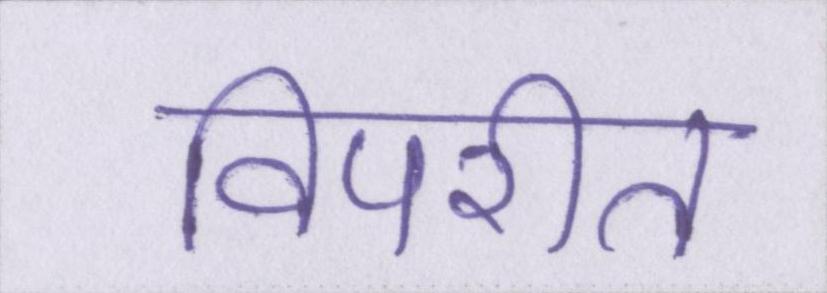 विपरीत